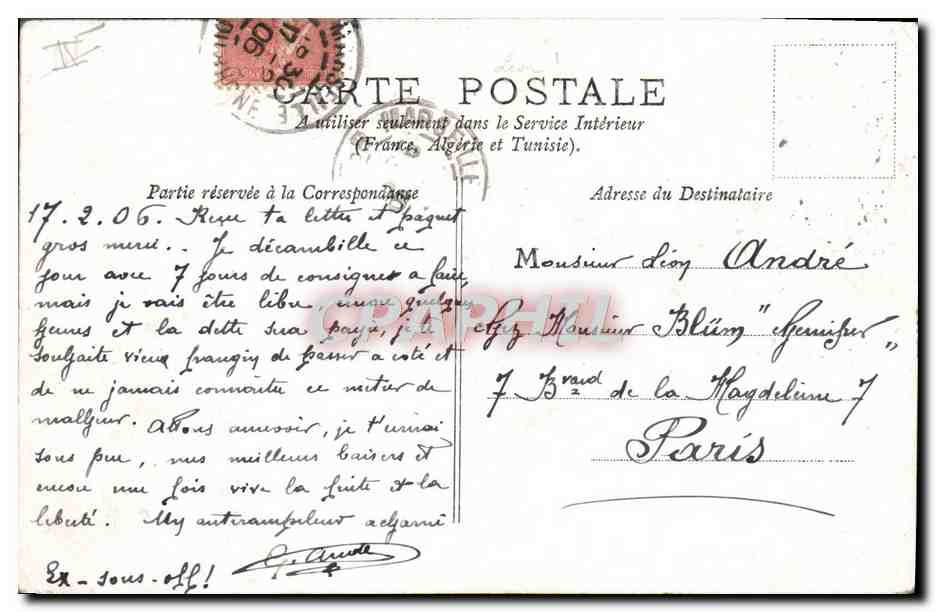 IV
Léon !
CARTE POSTALE
A utiliser seulement dans le Service Intérieur
(France, Algérie et Tunisie).
Partie réservée à la Correspondance
Adresse du Destinataire
17.2.06. Reçu ta lettre et paquet
gros merci.. Je décambille ce
jour avec 7 jours de consigne a faire,
mais je vais être libre encore quelques
heures et la dette sera payée, je te
souhaite vieux frangin de passer a coté et
de ne jamais connaitre ce metier de
malheur. Allons aurevoir, je t'écrirai
sous peu, mes meilleurs baisers et
encore une fois vive la fuite et la
liberté. acharné
G. André
Ex-sous-off!
Monsieur Léon André
Chez Monsieur Blüm "Chemisier"
7 Bvard de la Magdeleine 7
Paris
MARSEILLE
CPARPHIL